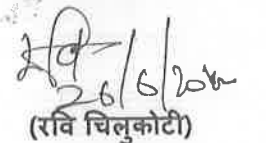 रवि
26/6/20
(रवि चिलुकोटी)